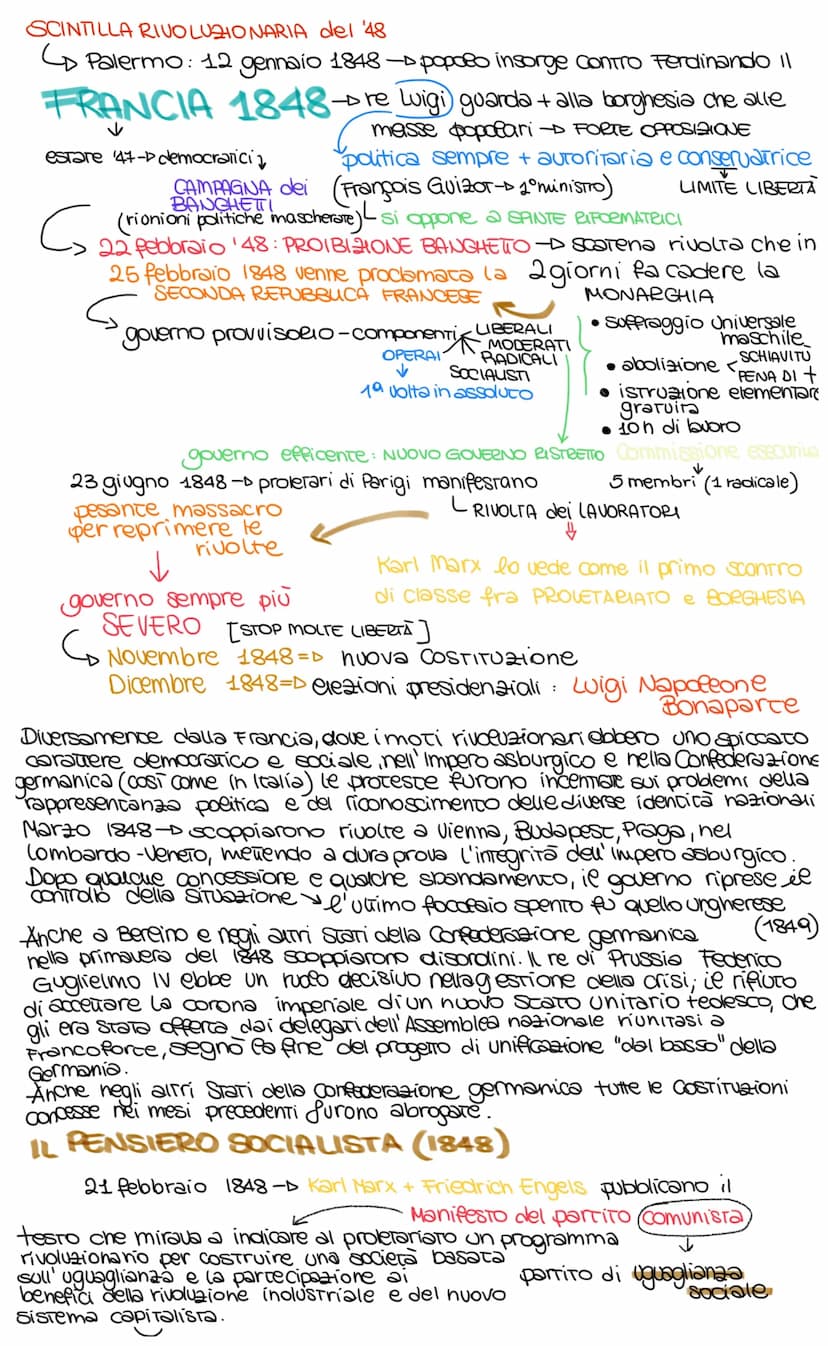 SCINTILLA RIVOLUZIONARIA del '48
↳ Palermo: 12 gennaio 1848 → popolo insorge contro Ferdinando II
FRANCIA 1848 → re Luigi guarda + alla borghesia che alle
masse popolari → FORTE OPPOSIZIONE
estate '47 → democratici
politica sempre + autoritaria e conservatrice
CAMPAGNA dei
BANCHETTI
(François Guizot → 1° ministro)
LIMITE LIBERTÀ
(riunioni politiche mascherate)
si oppone a SPINTE RIFORMATRICI
22 febbraio '48: PROIBIZIONE BANCHETTO → scatena rivolta che in
2 giorni fa cadere la
MONARCHIA
25 febbraio 1848 venne proclamata la
SECONDA REPUBBLICA FRANCESE
governo provvisorio - componenti
LIBERALI
MODERATI
RADICALI
SOCIALISTI
OPERAI
↓
1ª volta in assoluto
• suffraggio universale
maschile
• abolizione < SCHIAVITÙ
PENA DI †
• istruzione elementare
gratuita
• 10 h di lavoro
governo efficente: NUOVO GOVERNO RISTRETTO Commissione esecutiva
↓
5 membri (1 radicale)
23 giugno 1848 → proletari di Parigi manifestano
RIVOLTA dei LAVORATORI
pesante massacro
per reprimere le
rivolte
Karl Marx lo vede come il primo scontro
di classe fra PROLETARIATO e BORGHESIA
governo sempre più
SEVERO [STOP MOLTE LIBERTÀ]
↳ Novembre 1848 => nuova Costituzione
Dicembre 1848 => elezioni presidenziali: Luigi Napoleone
Bonaparte
Diversamente dalla Francia, dove i moti rivoluzionari ebbero uno spiccato
carattere democratico e sociale, nell'Impero asburgico e nella Confederazione
germanica (così come in Italia) le proteste furono incentrate sui problemi della
rappresentanza politica e del riconoscimento delle diverse identità nazionali
Marzo 1848 → scoppiarono rivolte a Vienna, Budapest, Praga, nel
Lombardo-Veneto, mettendo a dura prova l'integrità dell'Impero asburgico.
Dopo qualche concessione e qualche sbandamento, il governo riprese il
controllo della situazione ↘ l'ultimo focolaio spento fu quello ungherese
(1849)
Anche a Berlino e negli altri Stati della Confederazione germanica
nella primavera del 1848 scoppiarono disordini. Il re di Prussia Federico
Guglielmo IV ebbe un ruolo decisivo nella gestione della crisi; il rifiuto
di accettare la corona imperiale di un nuovo Stato unitario tedesco, che
gli era stata offerta dai delegati dell'Assemblea nazionale riunitasi a
Francoforte, segnò la fine del progetto di unificazione "dal basso" della
Germania.
Anche negli altri Stati della Confederazione germanica tutte le Costituzioni
concesse nei mesi precedenti furono abrogate.
IL PENSIERO SOCIALISTA (1848)
21 febbraio 1848 → Karl Marx + Friedrich Engels pubblicano il
Manifesto del partito comunista
testo che mirava a indicare al proletariato un programma
rivoluzionario per costruire una società basata
sull'uguaglianza e la partecipazione ai
benefici della rivoluzione industriale e del nuovo
sistema capitalista.
partito di uguaglianza
sociale